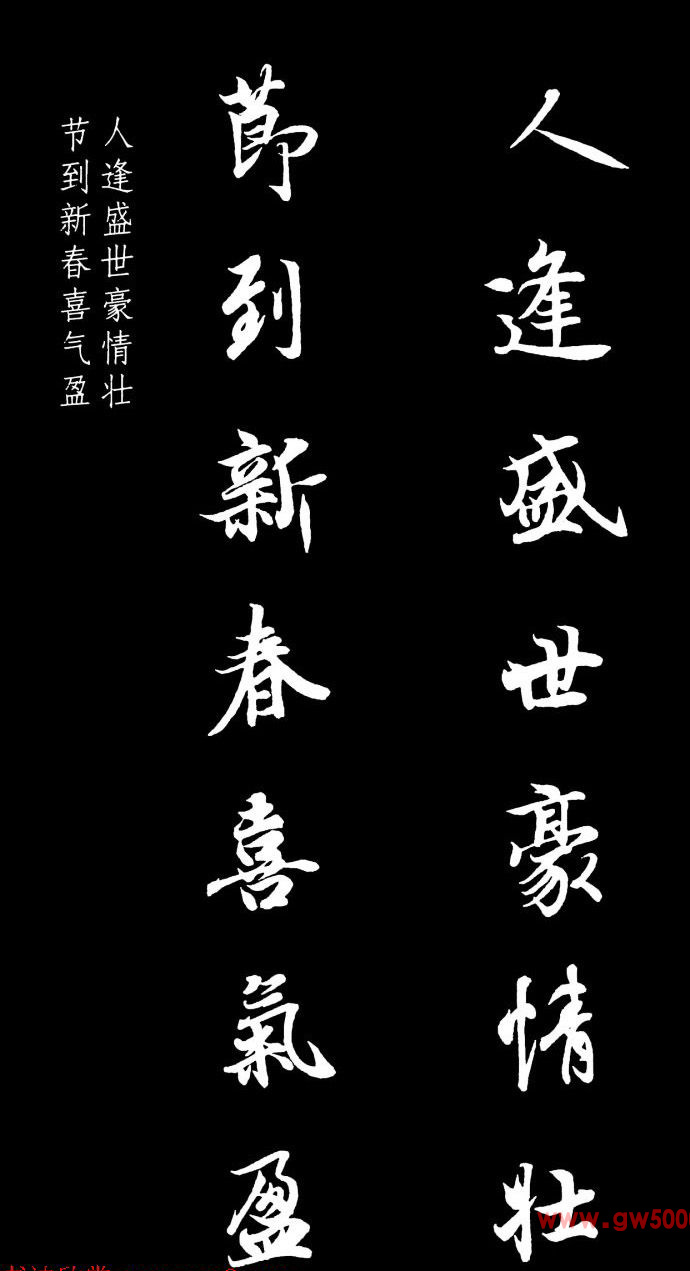 人逢盛世豪情壮
節到新春喜氣盈
人逢盛世豪情壮
节到新春喜气盈
www.gw500